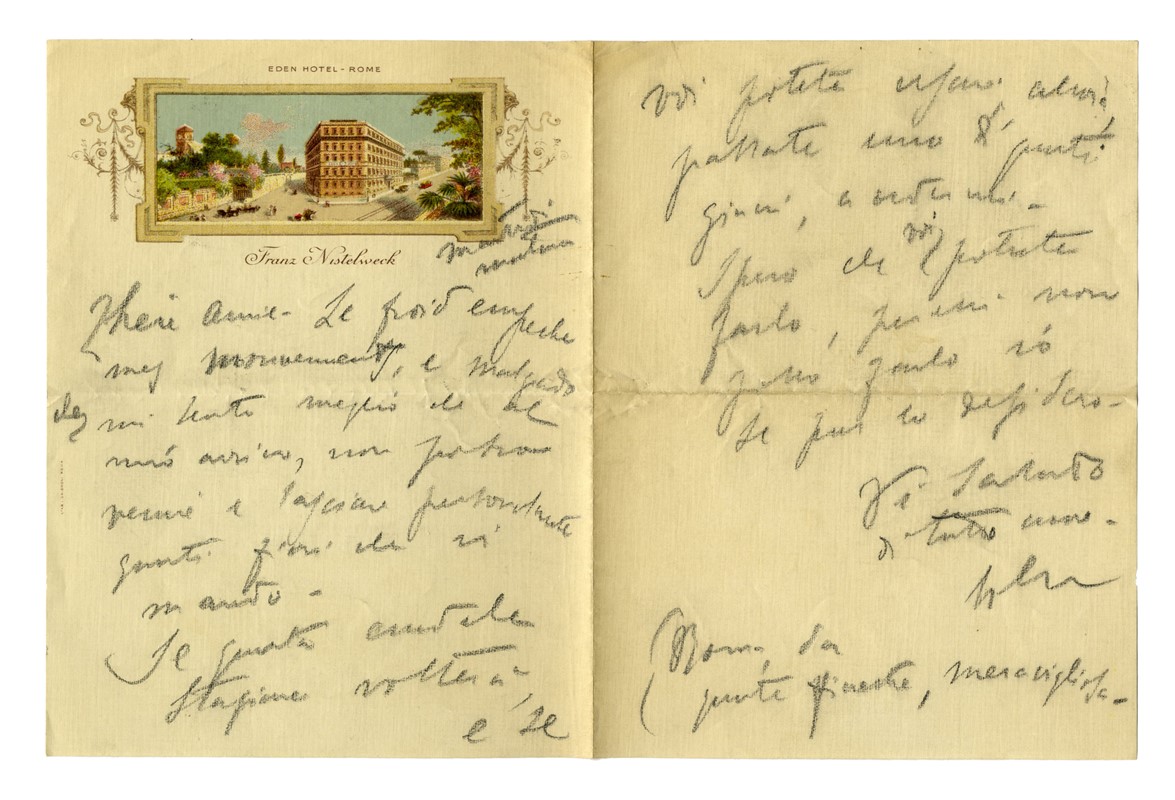 EDEN HOTEL - ROME
Franz Nistelweck
martedi
mattina
Chère Amie - Le froid empeche
mes mouvements, e malgrado
che
mi sento meglio che al
mio arrivo, non potevo
venire e lasciare personalmente
questi fiori che vi
mando -
Se questa crudele
stagione
e se
voi potete
passate uno di questi
giorni, a vedermi -
Spero che voi potrete
farlo, perchè non
posso farlo io
Se pur lo desidero -
Vi saluto
di tutto cuore -
(Roma, da
queste finestre, meravigliosa -